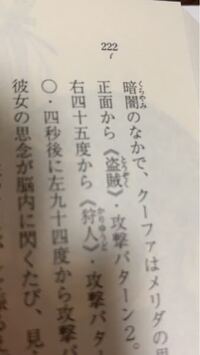 222
暗闇のなかで、クーファはメリダの思
正面から《盗賊》・攻撃パターン2。
右四十五度から《狩人》・攻撃パター
〇・四秒後に左九十四度から攻撃
彼女の思念が脳内に閃くたび、見